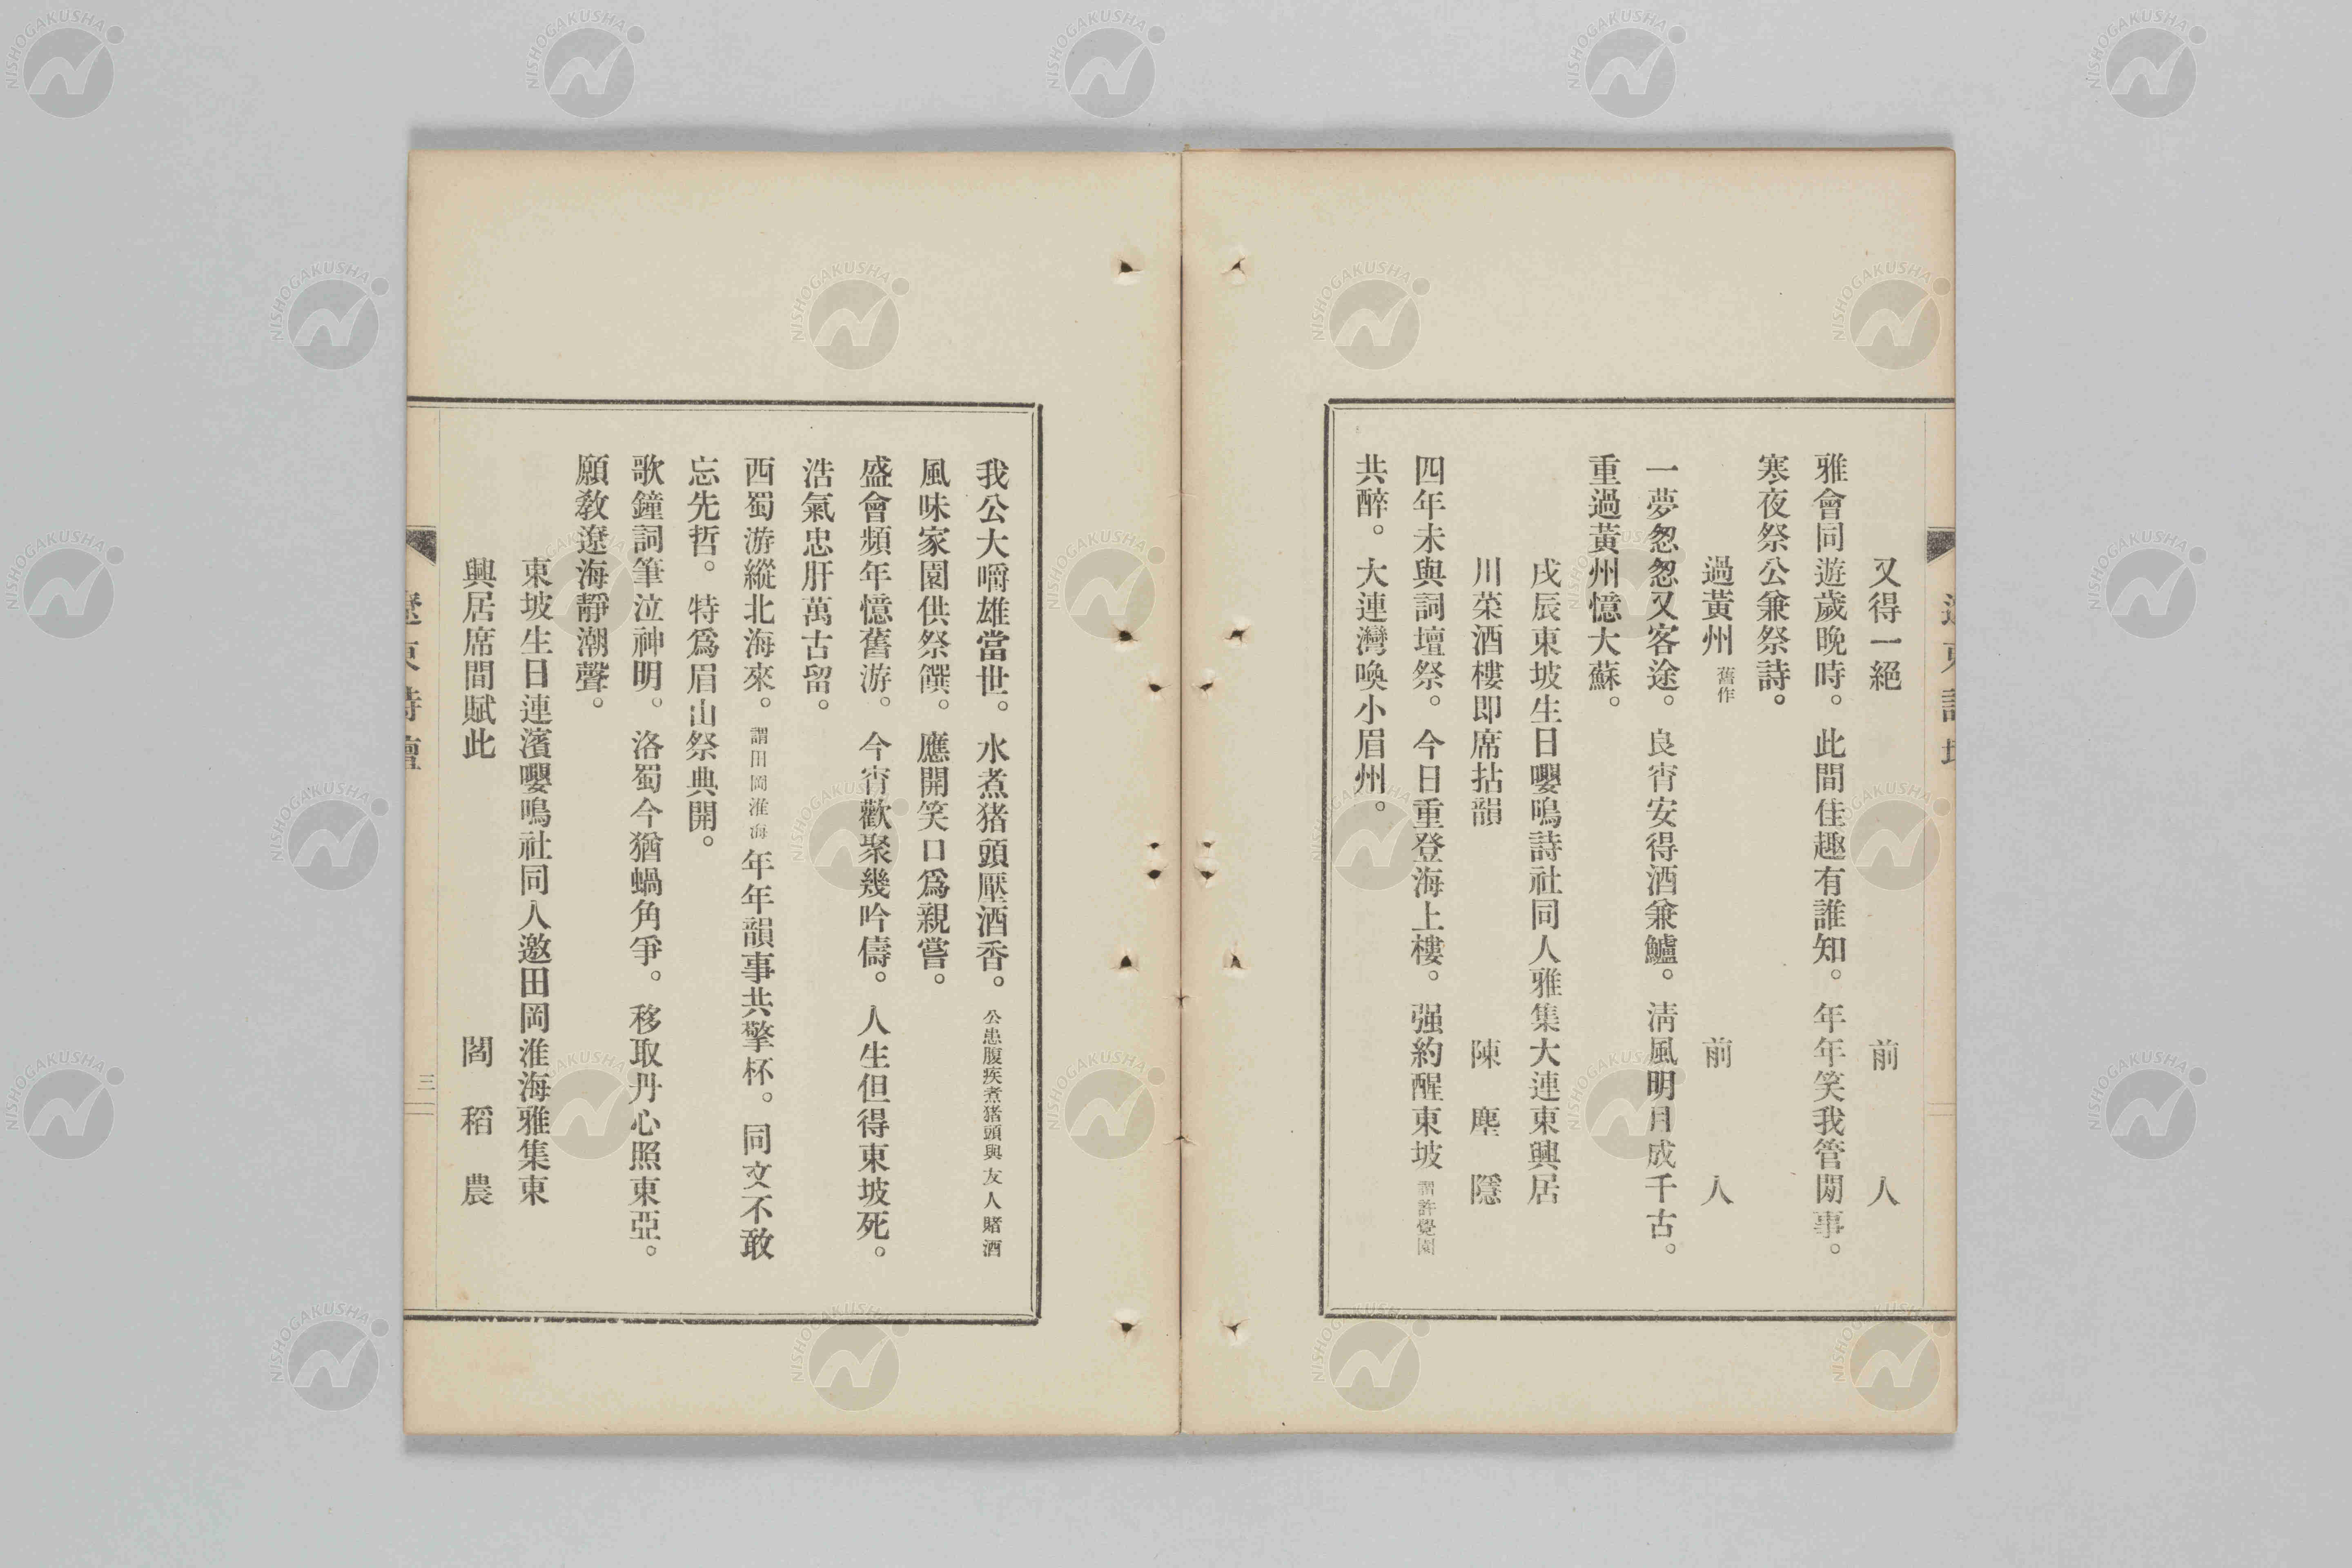 又得一絕　前人
雅會同遊歲晚時。此間佳趣有誰知。年年笑我管閒事。
寒夜祭公兼祭詩。
過黃州 舊作　前人
一夢怱怱又客途。良宵安得酒兼鱸。淸風明月成千古。
重過黃州憶大蘇。
戌辰東坡生日嚶鳴詩社同人雅集大連東興居
川菜酒樓即席拈韻　陳塵隱
四年未與詞壇祭。今日重登海上樓。强約醒東坡 謂許覺園
共醉。大連灣喚小眉州。
遼東詩壇
我公大嚼雄當世。水煮猪頭壓酒香。公患腹疾煮猪頭與友人賭酒
風味家園供祭饌。應開笑口爲親嘗。
盛會頻年憶舊游。今宵歡聚幾吟儔。人生但得東坡死。
浩氣忠肝萬古留。
西蜀游縱北海來。謂田岡淮海 年年韻事共擎杯。同文不敢
忘先哲。特爲眉山祭典開。
歌鐘詞筆泣神明。洛蜀今猶蝸角爭。移取丹心照東亞。
願敎遼海靜潮聲。
東坡生日連濱嚶鳴社同人邀田岡淮海雅集東
興居席間賦此　閻稻農
遼東詩壇
三
NISHOGAKUSHA